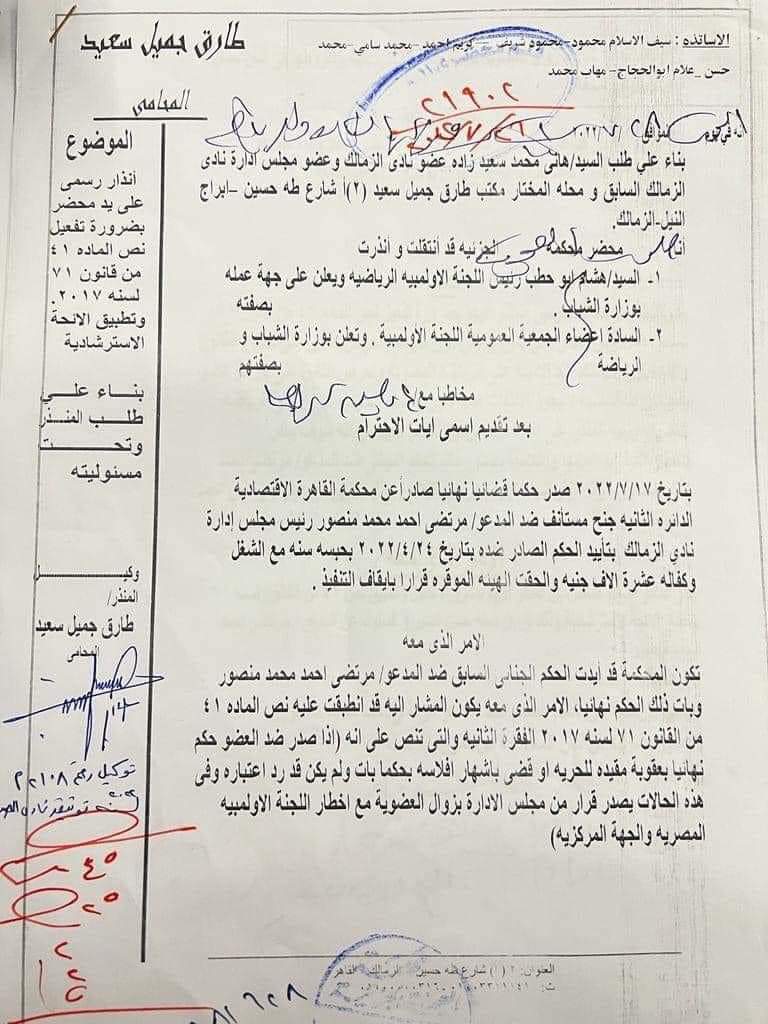 الاساتذه : سيف الاسلام محمود-محمود شريف - كريم احمد-محمد سامي-محمد
حسن _علام ابوالحجاج- مهاب محمد
طارق جميل سعيد
المحامى
٢١٩٠٢
انه في يوم الموافق / ٧ /٢٠٢٢
بناء علي طلب السيد/هانى محمد سعيد زاده عضو نادى الزمالك وعضو مجلس ادارة نادى
الزمالك السابق و محله المختار مكتب طارق جميل سعيد (٢)أ شارع طه حسين –ابراج
النيل-الزمالك.
أنا محضر محكمة الجزئيه قد أنتقلت و أنذرت
١- السيد/هشام ابو حطب رئيس اللجنة الاولمبيه الرياضيه ويعلن على جهة عمله
بوزارة الشباب . بصفته
٢- السادة اعضاء الجمعية العمومية اللجنة الاولمبية . وتعلن بوزارة الشباب و
الرياضة بصفتهم
مخاطبا مع/
بعد تقديم اسمى ايات الاحترام
بتاريخ ٢٠٢٢/٧/١٧ صدر حكما قضائيا نهائيا صادرأعن محكمة القاهرة الاقتصادية
الدائره الثانيه جنح مستأنف ضد المدعو/ مرتضى احمد محمد منصور رئيس مجلس إدارة
نادي الزمالك بتأييد الحكم الصادر ضده بتاريخ ٢٠٢٢/٤/٢٤ بحبسه سنه مع الشغل
وكفاله عشرة الاف جنيه والحقت الهيئه الموقره قرارا بايقاف التنفيذ .
الامر الذى معه
تكون المحكمة قد أيدت الحكم الجنائى السابق ضد المدعو/ مرتضى احمد محمد منصور
وبات ذلك الحكم نهائيا، الامر الذى معه يكون المشار اليه قد انطبقت عليه نص الماده ٤١
من القانون ٧١ لسنه ٢٠١٧ الفقرة الثانيه والتى تنص على انه (اذا صدر ضد العضو حكم
نهائيا بعقوبة مقيده للحريه او قضى باشهار افلاسه بحكما بات ولم يكن قد رد اعتباره وفى
هذه الحالات يصدر قرار من مجلس الادارة بزوال العضوية مع اخطار اللجنة الاولمبيه
المصريه والجهة المركزيه)
الموضوع
أنذار رسمى
على يد محضر
بضرورة تفعيل
نص الماده ٤١
من قانون ٧١
لسنه ٢٠١٧.
وتطبيق الائحة
الاسترشادية
بناء علي
طلب المنذر
وتحت
مسئوليته
وكيل
المنذر/
طارق جميل سعيد
المحامى
توكيل رقم ٢١٠٨
٤٥
٢٥
٢
العنوان: ٢ (أ) شارع طه حسين الزمالك القاهر